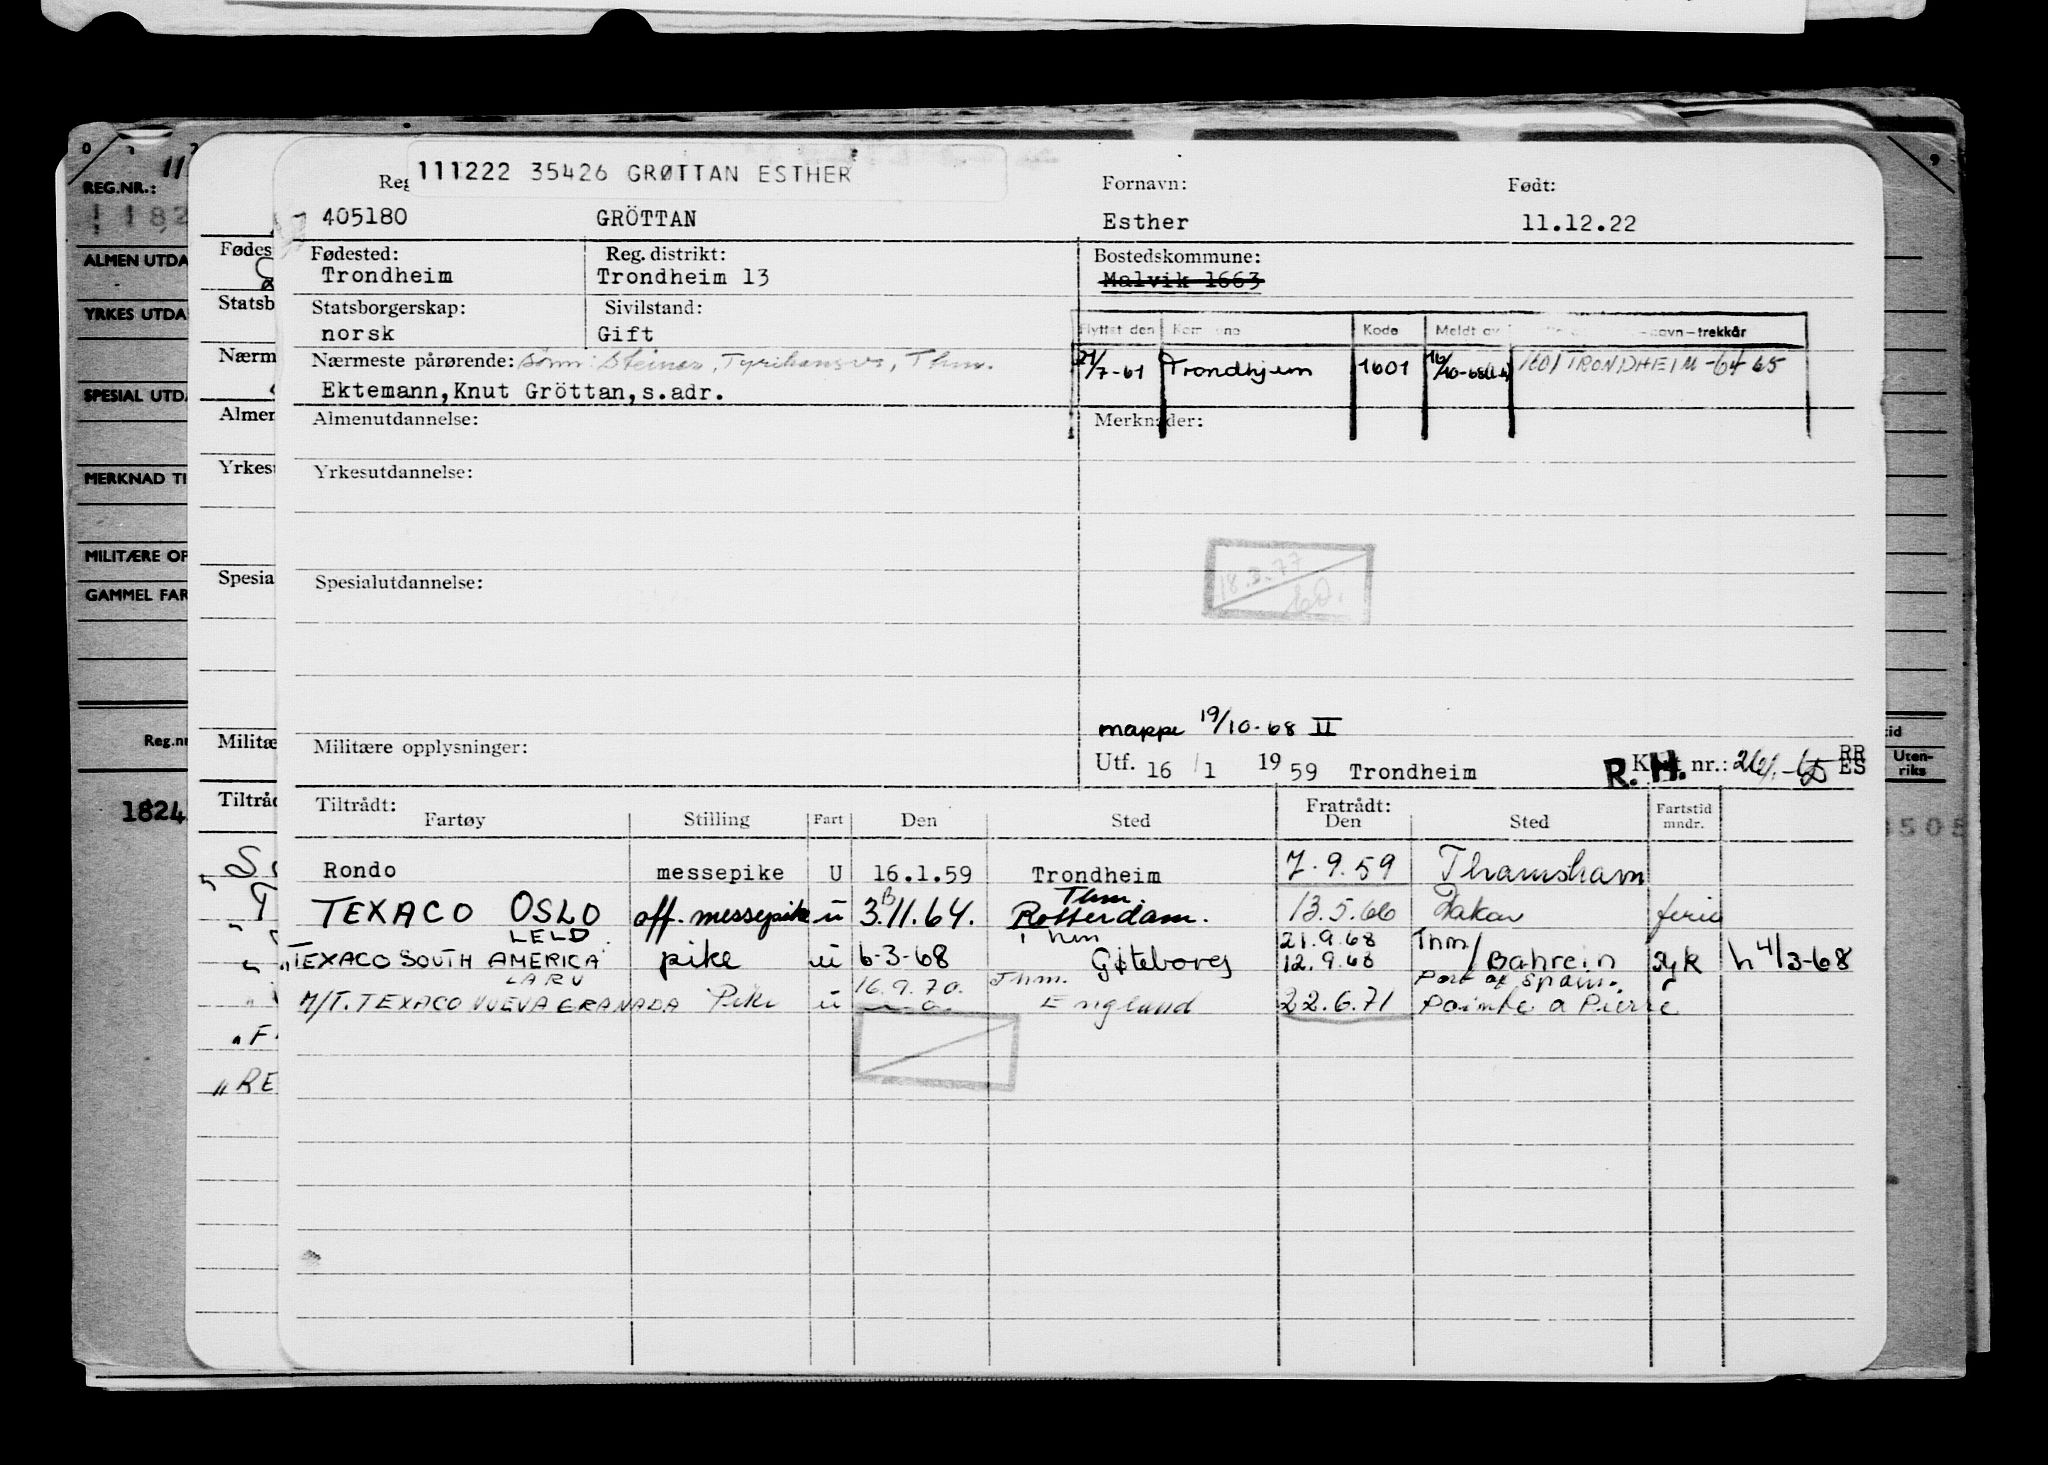 111222 35426 GRØTTAN ESTHER
Fornavn: Født:
405180 GRÖTTAN Esther 11.12.22
Fødested: Reg. distrikt: Bostedskommune:
Trondheim Trondheim 13 Malvik 1663
Statsborgerskap: Sivilstand:
norsk Gift
Flyttet den Kommune Kode Meldt av navn-trekkår
Nærmeste pårørende: Sønn: Steinar, Thm.
21/7-61 Trondhjem 1601 1601 TRONDHEIM-64-65
Ektemann,Knut Gröttan,s.adr.
Almenutdannelse: Merknader:
Yrkesutdannelse:
18.3.77
Spesialutdannelse:
mappe 19/10-68 II
Militære opplysninger:
Utf. 16 / 1 1959 Trondheim R.H. Kort nr.: RR ES
Tiltrådt: Fratrådt:
Fartøy Stilling Fart Den Sted Den Sted Fartstid mndr.
Rondo messepike U 16.1.59 Trondheim 7.9.59 Thamshavn
Thm.
TEXACO OSLO off. messepike u 3.11.64. Rotterdam. 13.5.66 Dakar ferie
LELD Thm 21.9.68 Thm
"TEXACO SOUTH AMERICA" pike u 6-3-68 Gøteborg 12.9.68 Bahrein syk h 4/3-68
LARU 16.9.70. Thm. Port of Spain.
M/T. TEXACO NUEVA GRANADA Pike u England 22.6.71 Pointe a Pierre
REG.NR.:
ALMEN UTDA
YRKES UTDA
SPESIAL UTDA
MERKNAD TI
MILITÆRE OP
GAMMEL FAR
Reg.nr
1824
Fødes
Statsb
Nærm
Almen
Yrkesu
Spesia
Militæ
Tiltråd
"RE
Uten-
riks